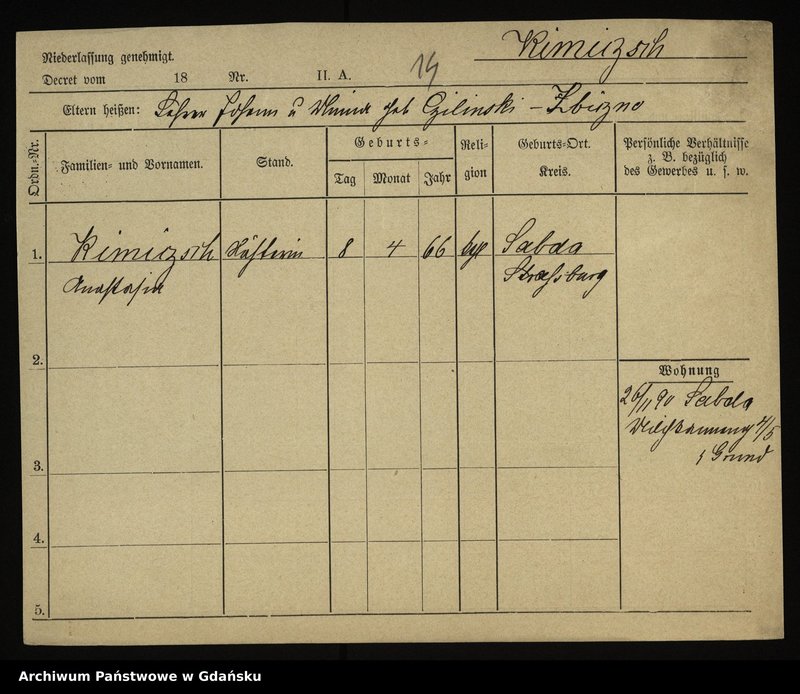 Kimiczsch
Niederlassung genehmigt.
Decret vom 18 Nr. II. A. 14
Eltern heißen: Lehrer Johann u geb Czilinski – Zbiczno
Ordn.-Nr. Familien- und Vornamen. Stand. Geburts- Tag Monat Jahr Religion Geburts-Ort. Kreis. Persönliche Verhältnisse z. B. bezüglich des Gewerbes u. s. w.
1. Kimiczsch Nähterin 8 4 66 Sabda
Anastasia Strassburg
2.
Wohnung
26/11 90 Sabda
4/5
Grund
3.
4.
5.
Archiwum Państwowe w Gdańsku